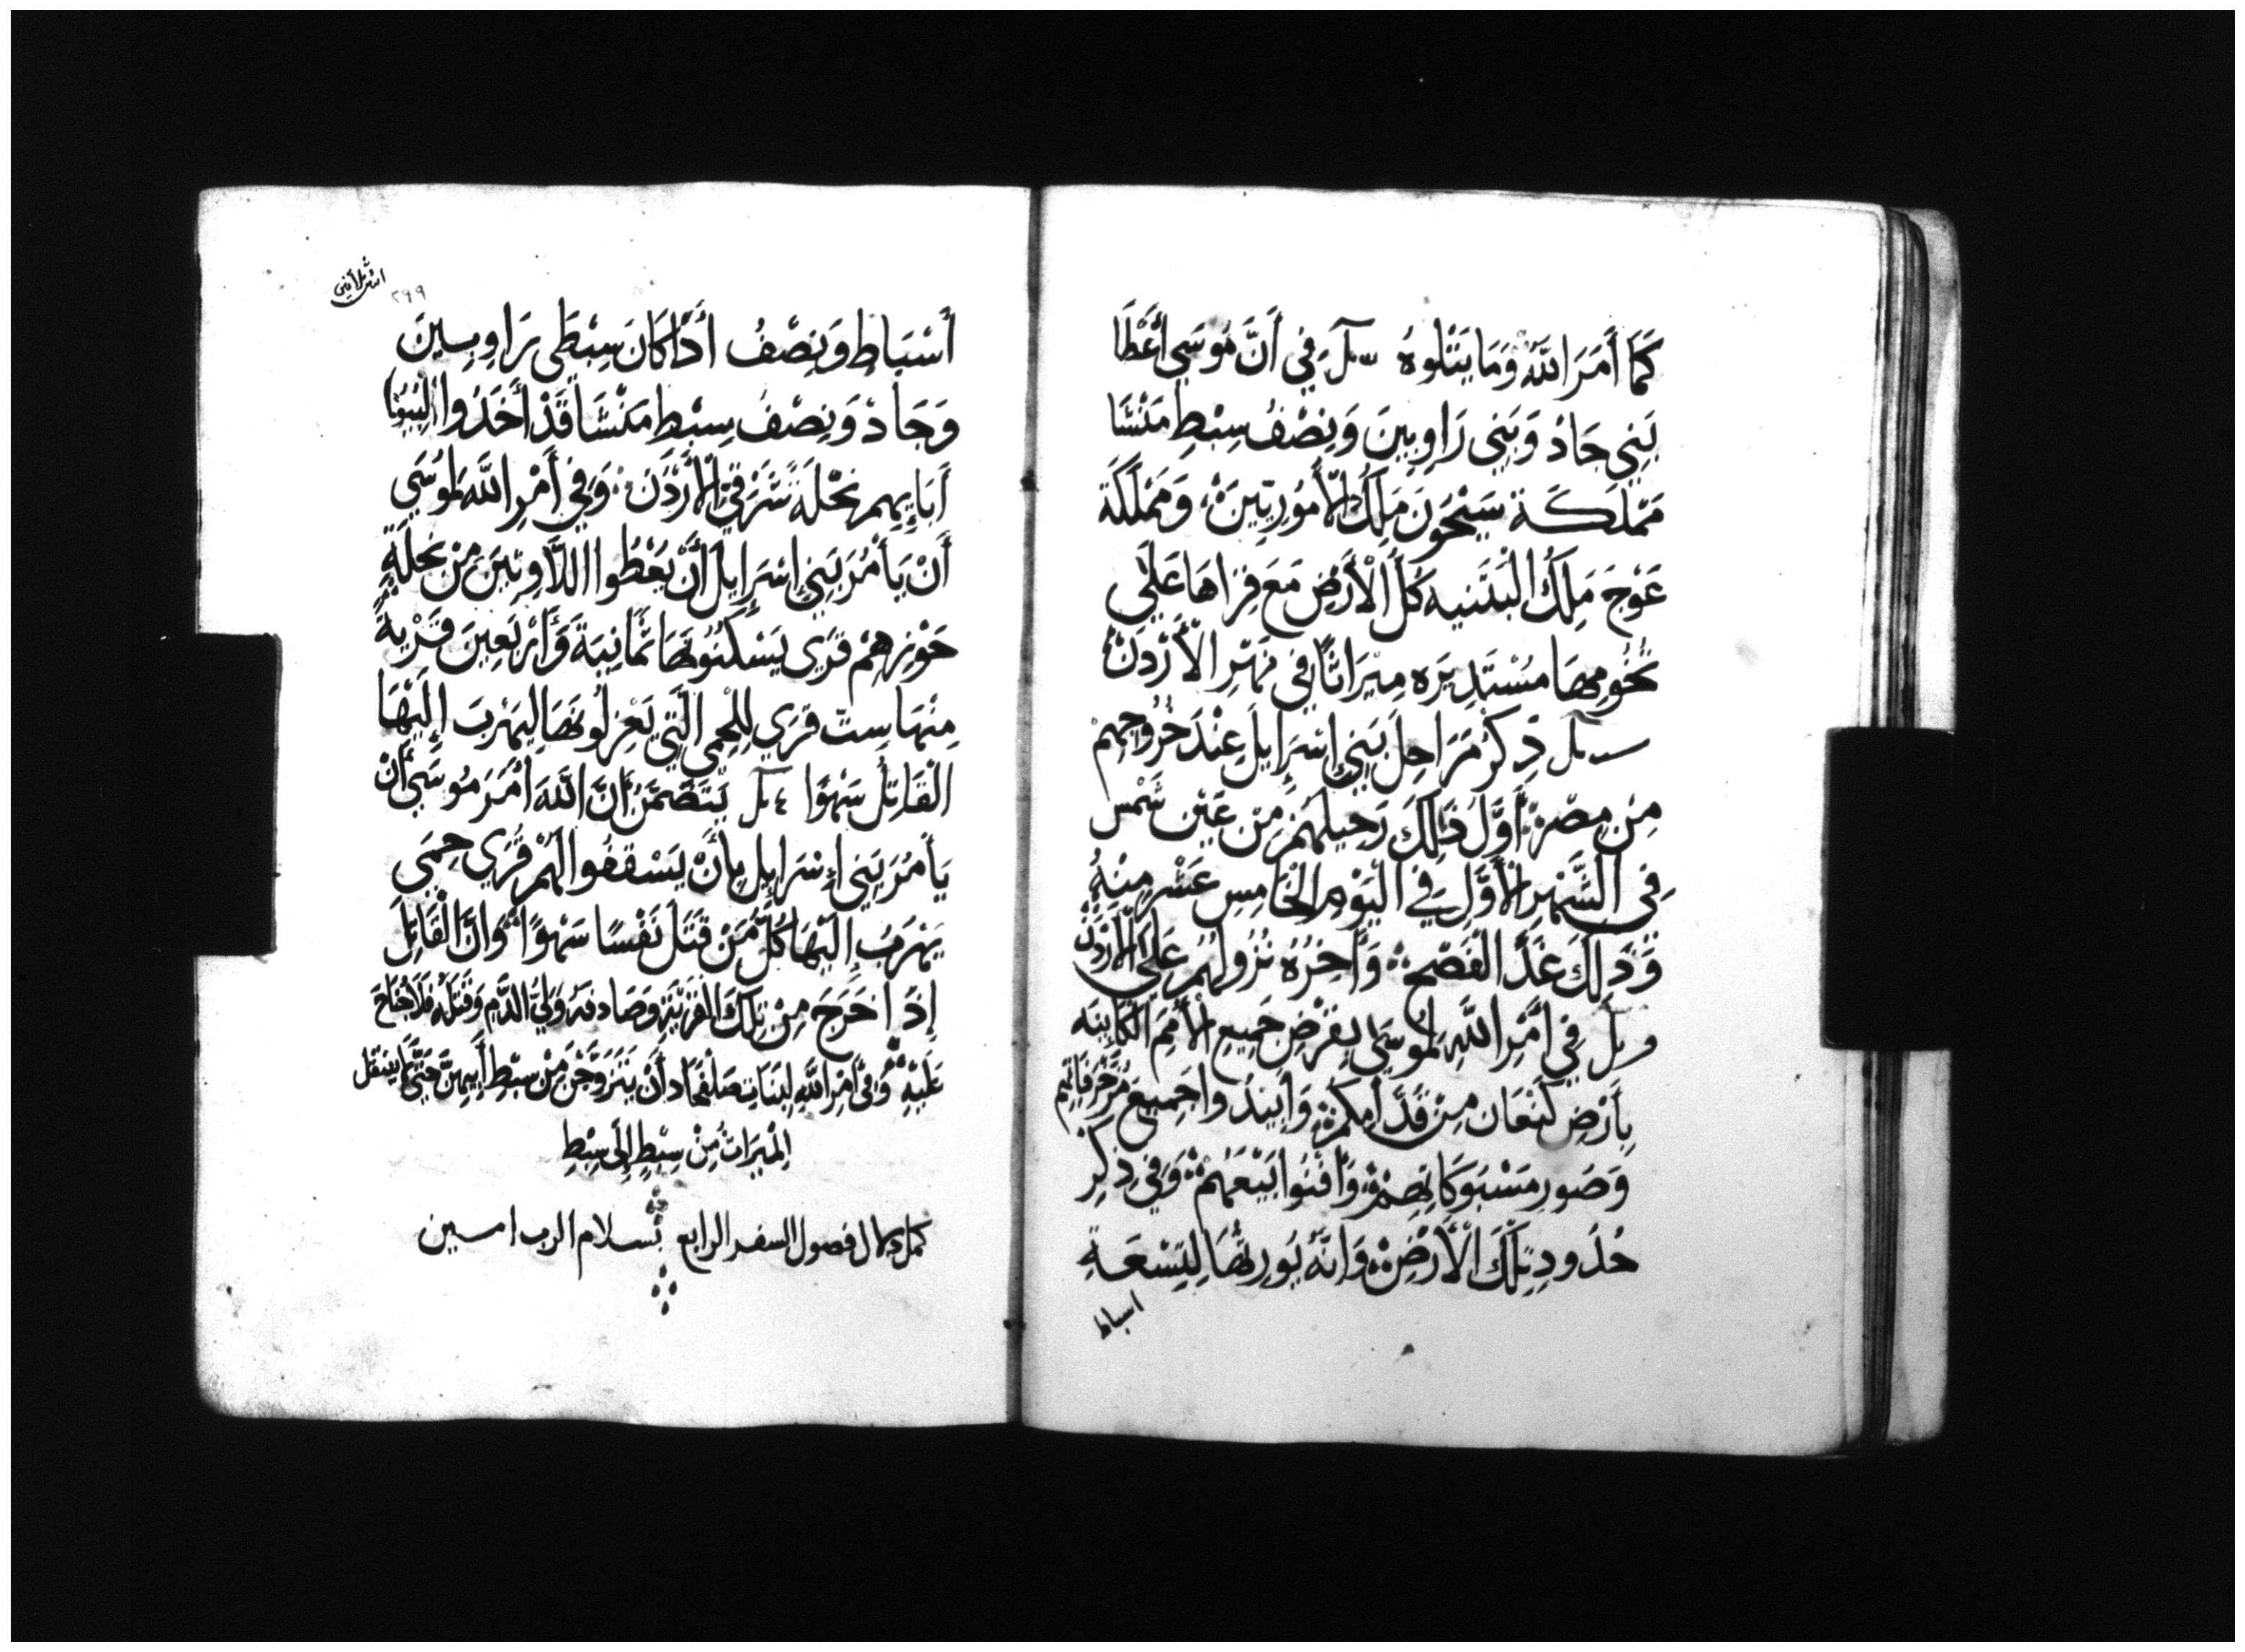 كَمَا أَمَرَ اللَّهُ وَمَا يَتْلُوهُ فِي أَنَّ مُوسَي أَعْطَا
بَنِي جَادْ وَبَنِي رَاوِبِينَ وَنِصْفُ سِبْطِ مَنْشَا
مَمْلَكَة سَيْحُونَ مَلِكُ الْأَمُورِيِّينَ وَمَمْلَكَة
عَوْجَ مَلِكُ الْبَتَنيه كُلَّ الْأَرْضِ مَعَ قِرَاهَا عَلَي
تُخُومِهَا مُسْتَدِيَرَه مِيْرَاثًا فِي نَهْرِ الْأُرْدُنّ
ذِكْرُ مَرَاحِلَ بَنِي إِسْرَايِلَ عِنْدَ خُرُوجِهِمْ
مِنْ مِصْرَ أَوَّل ذَالِكَ رَحِيلَهُمْ مِنْ عَيْن شَمْس
فِي الشَّهْرِ الْأَوَّل فِي الْيَوْم الْخَامِس عَشْر مِنْهُ
وَذَالِكَ غَدَ الْفَصْحِ وَأَخِرُهُ نُزُولُهُمْ عَلَي الْأُرْدُنّ
فِي أَمْرِ اللَّهِ لِمُوسَي بِقَرْضِ جَمِيعِ الْأُمَمِ الْكَائِنَه
بِأَرْضِ كَنْعَان مِنْ قُدَّامِكُمْ وَأَبِيدُوا جَمِيعَ مُزَخْرَفَاتِهِم
وَصُور مَسْبُوكَاتِهِمْ وَأَفْنُوا بَيْعَهُمْ وَفِي ذِكْرِ
حُدُودِ تِلْكَ الْأَرْضِ وَأَنَّهُ يُورِثُهَا لِتِسْعَةِ
اسباط
٢٩٩
أَسْبَاطٍ وَنِصْفُ أَذَا كَانَ سِبْطَي رَاوِبِينَ
وَجَادْ وَنِصْفُ سِبْطِ مَنْشَا قَدْ أَخَذُوا لِبُيُوتِ
أَبَايِهِم نِحْلَةً شَرْقِيِّ الْأُرْدُنّ وَفِي أَمْرِ اللَّهِ لِمُوسَي
أَنْ يَأْمُرَ بَنِي إِسْرَايِل أَنْ يُعْطُوا اللَّاوِيِّينَ مِنْ نِحْلَةِ
حَوْزِهِمْ قُرَي يَسْكُنُوهَا ثَمَانِيَةَ وَأَرْبَعِينَ قَرْيَةً
مِنْهَا سِتّ قُرَي لِلْحِمَي الَّتِي يَعْزِلُونَهَا لِيَهْرَبَ إِلَيْهَا
الْقَاتِلُ سَهْوًا يَتَضَمَّنُ أَنَّ اللَّهَ أَمَرَ مُوسَي أَنْ
يَأْمُرَ بَنِي إِسْرَايِل بِأَنْ يَسْقِفُوا لَهُمْ قُرَي حِمَي
يَهْرَبُ إِلَيْهَا كُلُّ مَنْ قَتَلَ نَفْسًا سَهْوًا وَانَّ الْقَاتِلَ
إِذَا خَرَجَ مِنْ تِلْكَ الْقَرْيَةِ وَصَادفَهُ وَلِيُّ الدَّمِ وَقَتَلَهُ فَلَا جُنَاحَ
عَلَيْهِ وَفِي أَمْرِ اللَّهِ لِبَنَات صَلَفْحَاد أَنْ يَتَزَوَّجْنَ مِنْ سِبْطِ أَبِيهِنَّ حَتَّي لَا يَنْتَقِل
الْمِيرَاثُ مِنْ سِبْطٍ إِلَي سِبْطٍ
كمل كمال فصول السفر الرابع بسلام الرب امين